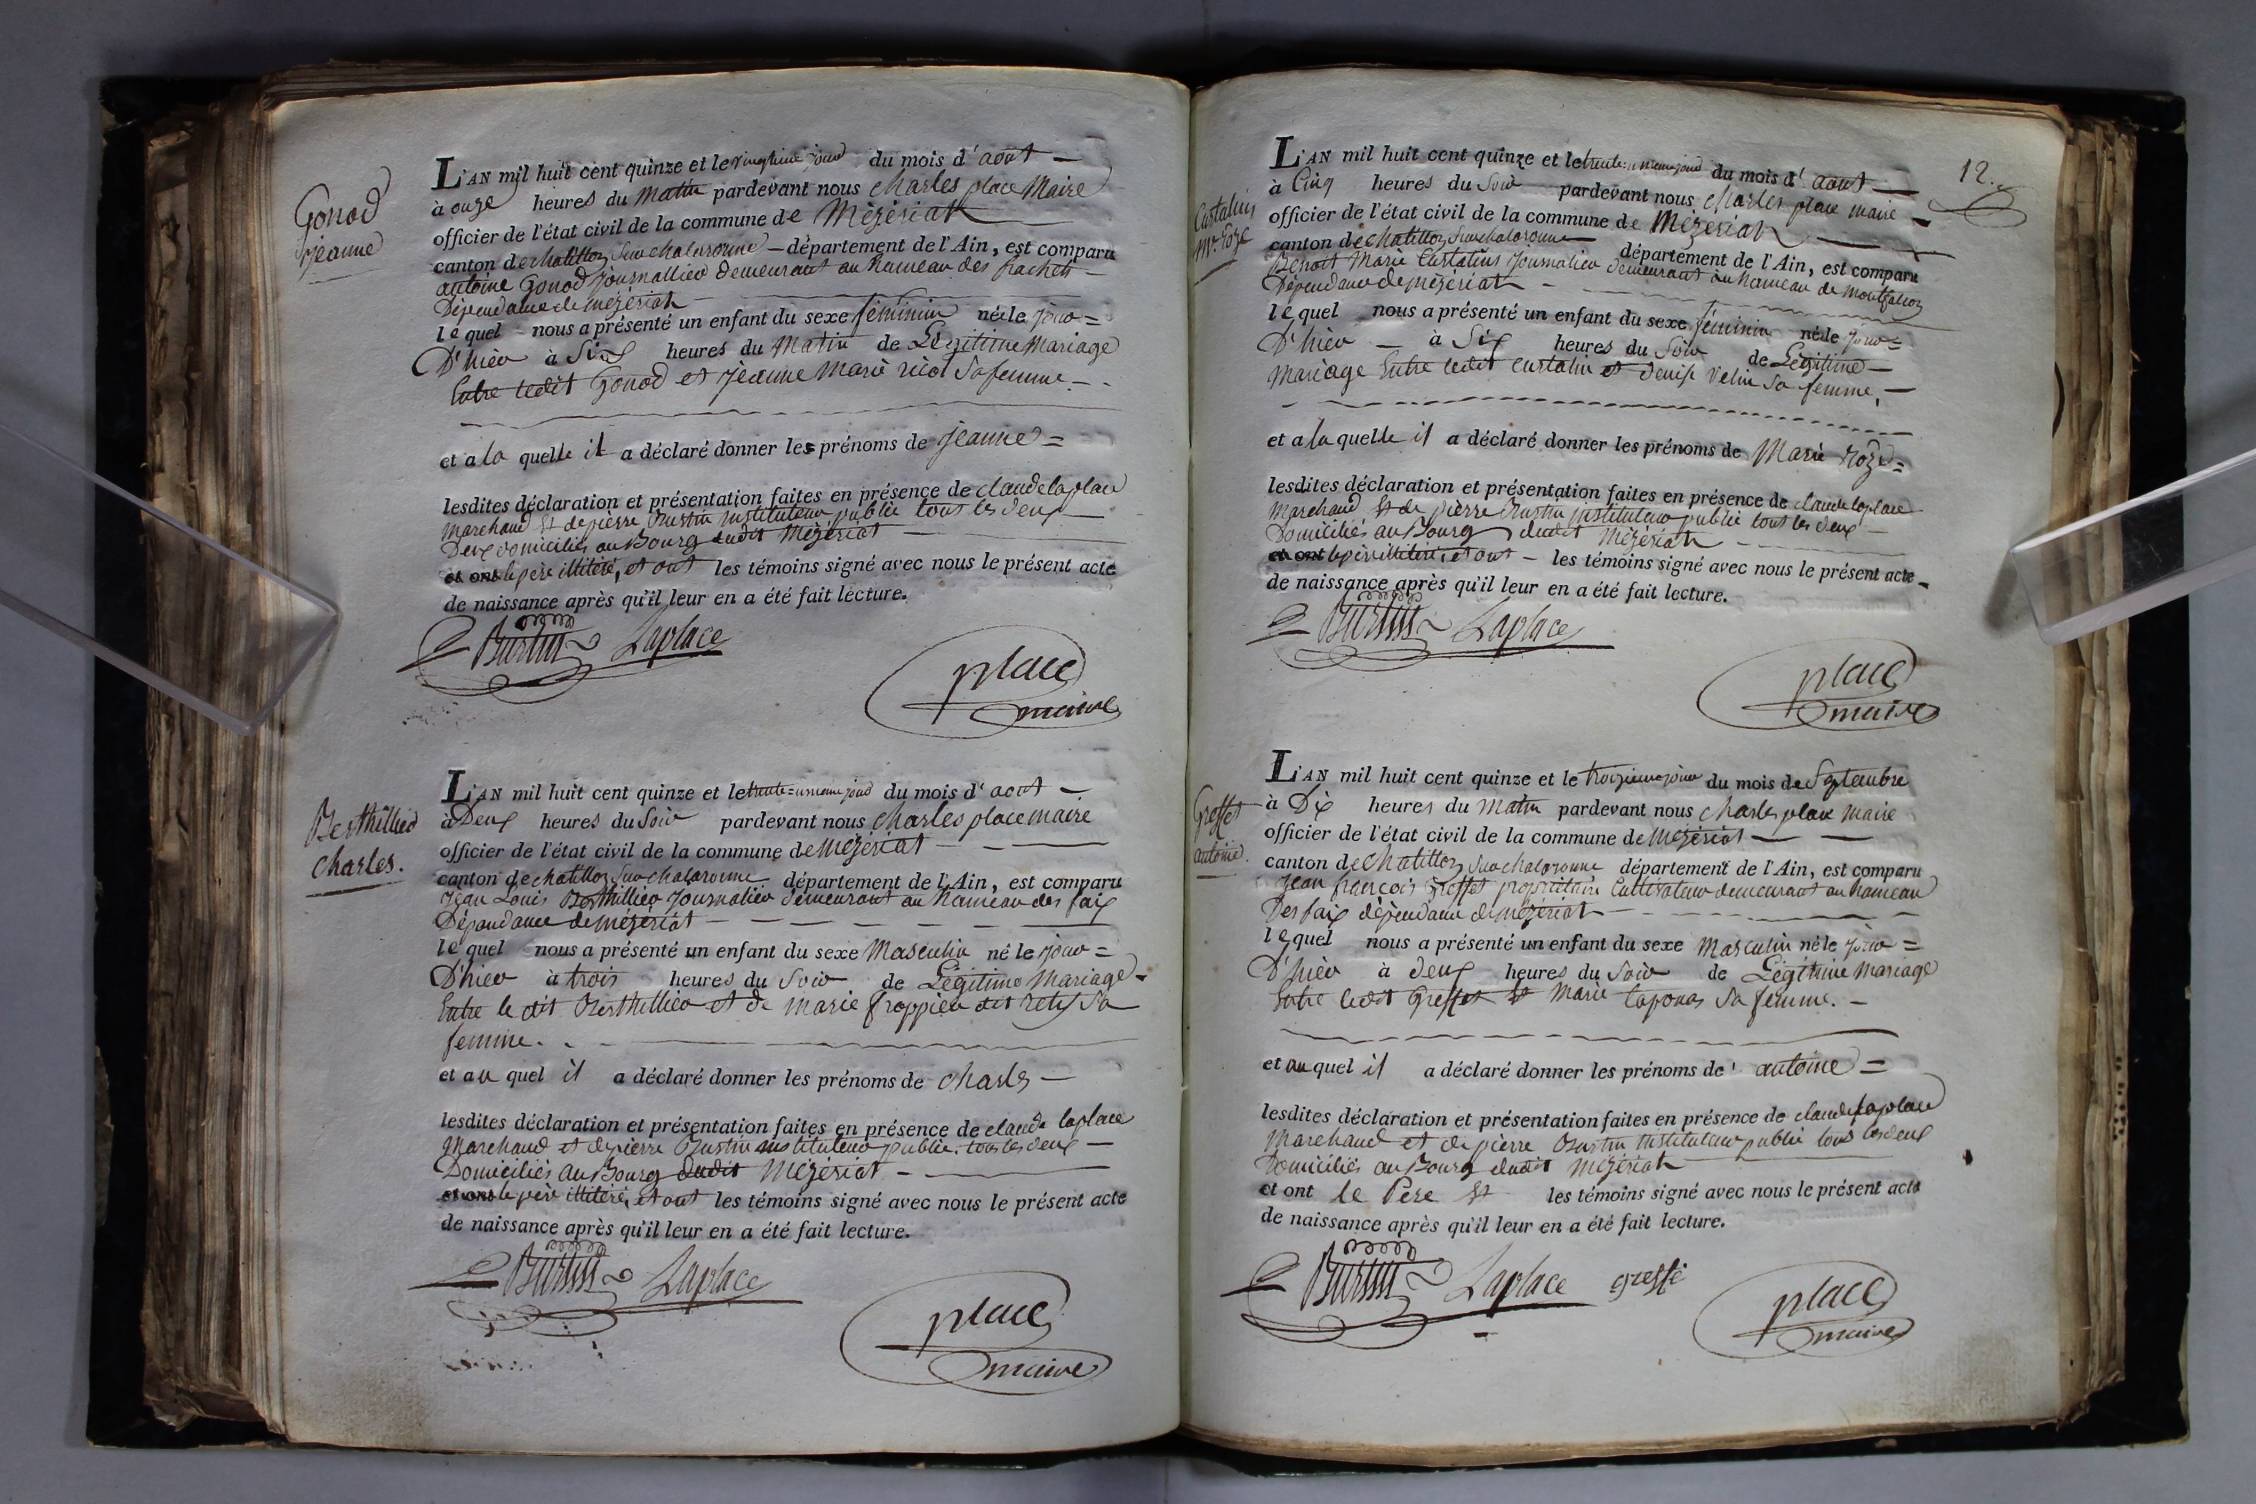 Gonod
Jeanne
L'AN mil huit cent quinze et le vingtième jour du mois d'août
à onze heures du matin pardevant nous charles place Maire
officier de l'état civil de la commune de Mézériat
canton de chatillon sur chalaronne département de l'Ain, est comparu
antoine Gonod journallier demeurant au hameau des
Dépendance de mézériat
lequel nous a présenté un enfant du sexe féminin né le jour =
D'hier à Six heures du Matin de Légitime Mariage
Entre ledit Gonod et Jeanne Marie ricol Sa femme
et a la quelle il a déclaré donner les prénoms de jeanne =
lesdites déclaration et présentation faites en présence de claude laplace
Marchand Et de pierre Burtin instituteur public tous les deux
Deux domiciliés au Bourg dudit Mézériat
et ont le père illitéré, et ont les témoins signé avec nous le présent acte
de naissance après qu'il leur en a été fait lecture.
Burtin Laplace
place
maire
Berthillier
charles.
L'AN mil huit cent quinze et le trente=unième jour du mois d'août
à Deux heures du Soir pardevant nous charles place maire
officier de l'état civil de la commune de Mézériat
canton de chatillon sur chalaronne département de l'Ain, est comparu
Jean Louis Berthillier Journalier demeurant au hameau des faix
Dépendance de mézériat
lequel nous a présenté un enfant du sexe Masculin né le jour =
D'hier à trois heures du Soir de Légitime Mariage
Entre le dit Berthillier et de marie froppier dit rety Sa
femme.
et au quel il a déclaré donner les prénoms de charles
lesdites déclaration et présentation faites en présence de claude laplace
Marchand et de pierre Burtin instituteur public tous les deux
Domiciliés au Bourg dudit Mézériat
et ont le père illitéré, et ont les témoins signé avec nous le présent acte
de naissance après qu'il leur en a été fait lecture.
Burtin Laplace
place
maire
12.
Curtalin
Mie Roze
L'AN mil huit cent quinze et le trente=unième jour du mois d'août
à Cinq heures du Soir pardevant nous charles place maire
officier de l'état civil de la commune de Mézériat
canton de chatillon sur chalaronne département de l'Ain, est comparu
Benoit Marie Curtalin Journalier demeurant au hameau de Montfalcon
Dépendance de mézériat
lequel nous a présenté un enfant du sexe féminin né le jour =
D'hier à Six heures du Soir de Légitime
Mariage Entre ledit Curtalin et denise Velin Sa femme,
et a la quelle il a déclaré donner les prénoms de Marie Roze =
lesdites déclaration et présentation faites en présence de claude laplace
Marchand Et de pierre Burtin instituteur public tous les deux
Domiciliés au Bourg dudit Mézériat
et ont le père illitéré, et ont les témoins signé avec nous le présent acte
de naissance après qu'il leur en a été fait lecture.
Burtin Laplace
place
maire
Greffet
antoine.
L'AN mil huit cent quinze et le troizième jour du mois de Septembre
à Dix heures du Matin pardevant nous charles place maire
officier de l'état civil de la commune de Mézériat
canton de chatillon sur chalaronne département de l'Ain, est comparu
Jean françois Greffet propriétaire Cultivateur demeurant au hameau
Des faix dépendance de mézériat
lequel nous a présenté un enfant du sexe Masculin né le jour =
D'hier à deux heures du Soir de Légitime Mariage
Entre ledit Greffet Et Marie taponas Sa femme.
et au quel il a déclaré donner les prénoms de antoine =
lesdites déclaration et présentation faites en présence de claude laplace
Marchand et de pierre Burtin instituteur public tous les deux
Domiciliés au Bourg dudit Mézériat
et ont le Père Et les témoins signé avec nous le présent acte
de naissance après qu'il leur en a été fait lecture.
Burtin Laplace greffé
place
maire